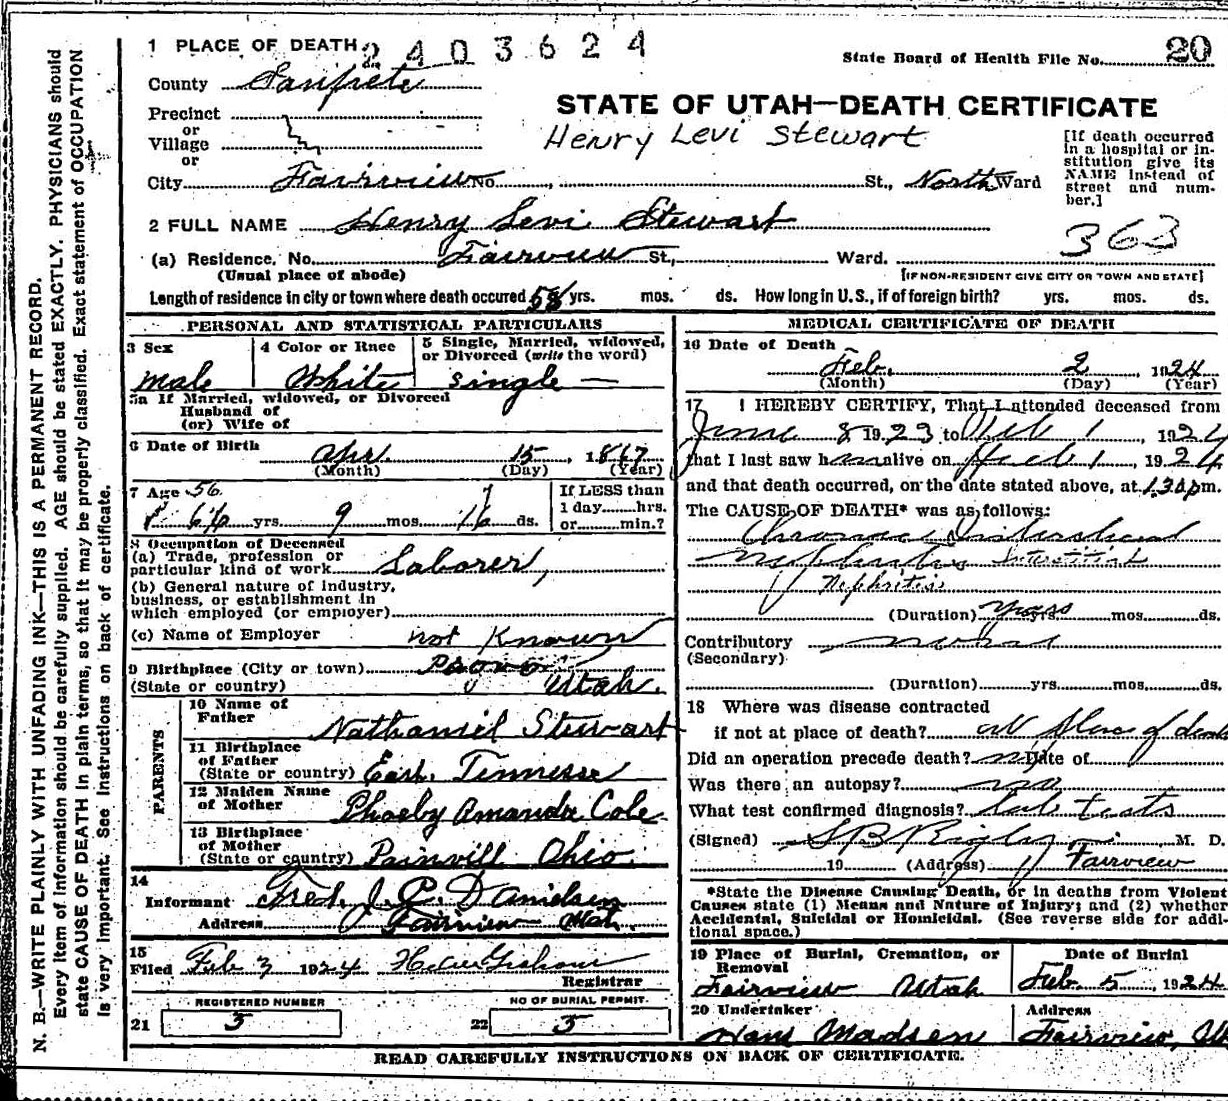 1 PLACE OF DEATH 2403624
State Board of Health File No. 20
County Sanpete
STATE OF UTAH—DEATH CERTIFICATE
Precinct
or
Village
or
Henry Levi Stewart
[If death occurred in a hospital or institution give its NAME instead of street and number.]
City Fairview No. , St., North Ward
2 FULL NAME Henry Levi Stewart
363
(a) Residence. No. Fairview St., Ward.
(Usual place of abode)
[IF NON-RESIDENT GIVE CITY OR TOWN AND STATE]
Length of residence in city or town where death occured yrs. mos. ds. How long in U.S., if of foreign birth? yrs. mos. ds.
PERSONAL AND STATISTICAL PARTICULARS
3 Sex
male
4 Color or Race
White
5 Single, Married, widowed, or Divorced (write the word)
single —
5a If Married, widowed, or Divorced
Husband of
(or) Wife of
6 Date of Birth
15, 1867
(Month) (Day) (Year)
7 Age 56
yrs. 9 mos. ds.
If LESS than
1 day hrs.
or min.?
8 Occupation of Deceased
(a) Trade, profession or
particular kind of work Laborer,
(b) General nature of industry,
business, or establishment in
which employed (or employer)
(c) Name of Employer not Known
9 Birthplace (City or town) Provo
(State or country) Utah.
PARENTS
10 Name of
Father Nathaniel Stewart
11 Birthplace
of Father
(State or country) East. Tennesse
12 Maiden Name
of Mother Phoeby Amanda Cole
13 Birthplace
of Mother
(State or country) Painvill Ohio.
14
Informant J. P. Danielsen
Address Fairview Utah.
15
Filed Feb 3 1924
Registrar
REGISTERED NUMBER
21 3
NO OF BURIAL PERMIT.
22 3
MEDICAL CERTIFICATE OF DEATH
16 Date of Death
Feb. 2 1924
(Month) (Day) (Year)
17 I HEREBY CERTIFY, That I attended deceased from
June 8 1923 to Feb 1, 1924
that I last saw h alive on Feb 1, 1924
and that death occurred, on the date stated above, at 1.30 pm.
The CAUSE OF DEATH* was as follows:
Chronic Interstitial
Nephritis Interstitial
Nephritis
(Duration) years yrs. mos. ds.
Contributory
(Secondary)
(Duration) yrs. mos. ds.
18 Where was disease contracted
if not at place of death? at place of death
Did an operation precede death? no Date of
Was there an autopsy? no
What test confirmed diagnosis? Lab tests
(Signed) M. D.
19 (Address) Fairview
*State the Disease Causing Death, or in deaths from Violent
Causes state (1) Means and Nature of Injury; and (2) whether
Accidental, Suicidal or Homicidal. (See reverse side for addi-
tional space.)
19 Place of Burial, Cremation, or
Removal
Fairview Utah
Date of Burial
Feb. 5, 1924
20 Undertaker
Hans Madsen
Address
Fairview,
READ CAREFULLY INSTRUCTIONS ON BACK OF CERTIFICATE.
N. B.—WRITE PLAINLY WITH UNFADING INK—THIS IS A PERMANENT RECORD.
Every item of information should be carefully supplied. AGE should be stated EXACTLY. PHYSICIANS should
state CAUSE OF DEATH in plain terms, so that it may be properly classified. Exact statement of OCCUPATION
is very important. See instructions on back of certificate.